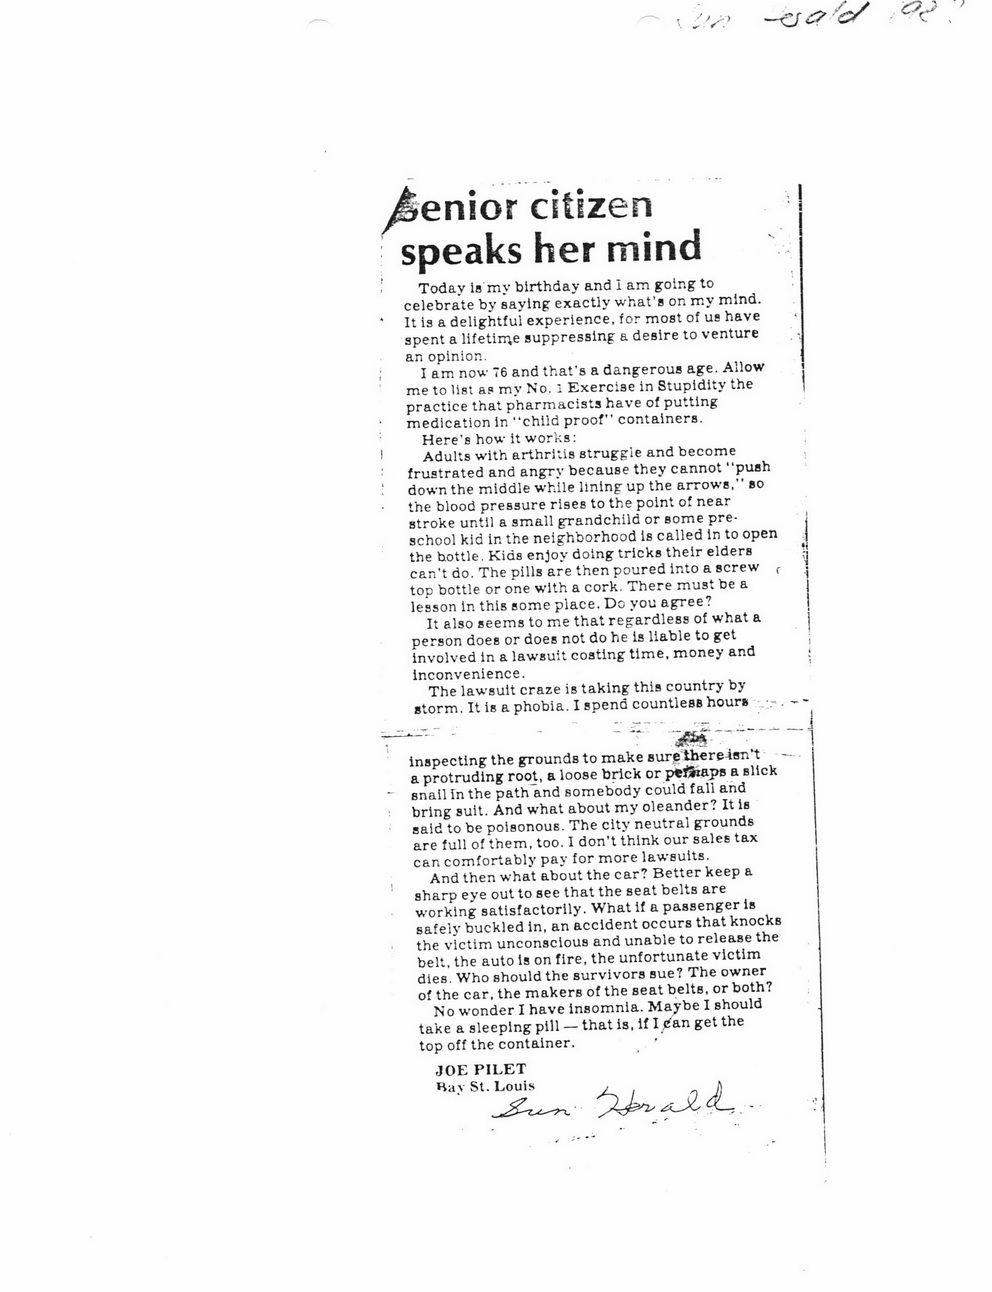 Sun Herald 198
Senior citizen
speaks her mind
Today is my birthday and I am going to
celebrate by saying exactly what's on my mind.
It is a delightful experience, for most of us have
spent a lifetime suppressing a desire to venture
an opinion.
I am now 76 and that's a dangerous age. Allow
me to list as my No. 1 Exercise in Stupidity the
practice that pharmacists have of putting
medication in "child proof" containers.
Here's how it works:
Adults with arthritis struggle and become
frustrated and angry because they cannot "push
down the middle while lining up the arrows," so
the blood pressure rises to the point of near
stroke until a small grandchild or some pre-
school kid in the neighborhood is called in to open
the bottle. Kids enjoy doing tricks their elders
can't do. The pills are then poured into a screw
top bottle or one with a cork. There must be a
lesson in this some place. Do you agree?
It also seems to me that regardless of what a
person does or does not do he is liable to get
involved in a lawsuit costing time, money and
inconvenience.
The lawsuit craze is taking this country by
storm. It is a phobia. I spend countless hours
inspecting the grounds to make sure there isn't
a protruding root, a loose brick or perhaps a slick
snail in the path and somebody could fall and
bring suit. And what about my oleander? It is
said to be poisonous. The city neutral grounds
are full of them, too. I don't think our sales tax
can comfortably pay for more lawsuits.
And then what about the car? Better keep a
sharp eye out to see that the seat belts are
working satisfactorily. What if a passenger is
safely buckled in, an accident occurs that knocks
the victim unconscious and unable to release the
belt, the auto is on fire, the unfortunate victim
dies. Who should the survivors sue? The owner
of the car, the makers of the seat belts, or both?
No wonder I have insomnia. Maybe I should
take a sleeping pill — that is, if I can get the
top off the container.
JOE PILET
Bay St. Louis
Sun Herald